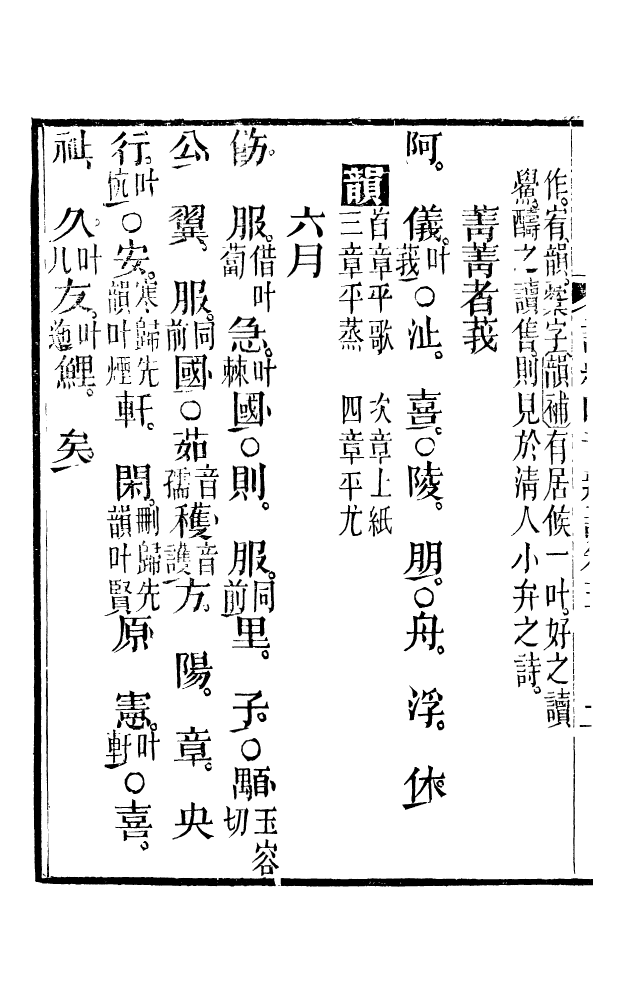 作宥韻櫱字韻補有居候一叶好之讀
鱟醻之讀售則見於清人小弁之詩
菁菁者莪
阿 儀叶莪○沚 喜○陵 朋○舟 浮 休
韻首章平歌 次章上紙
三章平蒸 四章平尤
六月
飭 服借叶蔔 急叶棘國○則 服同前里 子○顒玉容切
公 翼 服同前國○茹音孺穫音護方 陽 章 央
行叶杭○安寒歸先韻叶煙軒 閑刪歸先韻叶賢原 憲叶軒○喜
祉 久叶几友叶鯉 矣